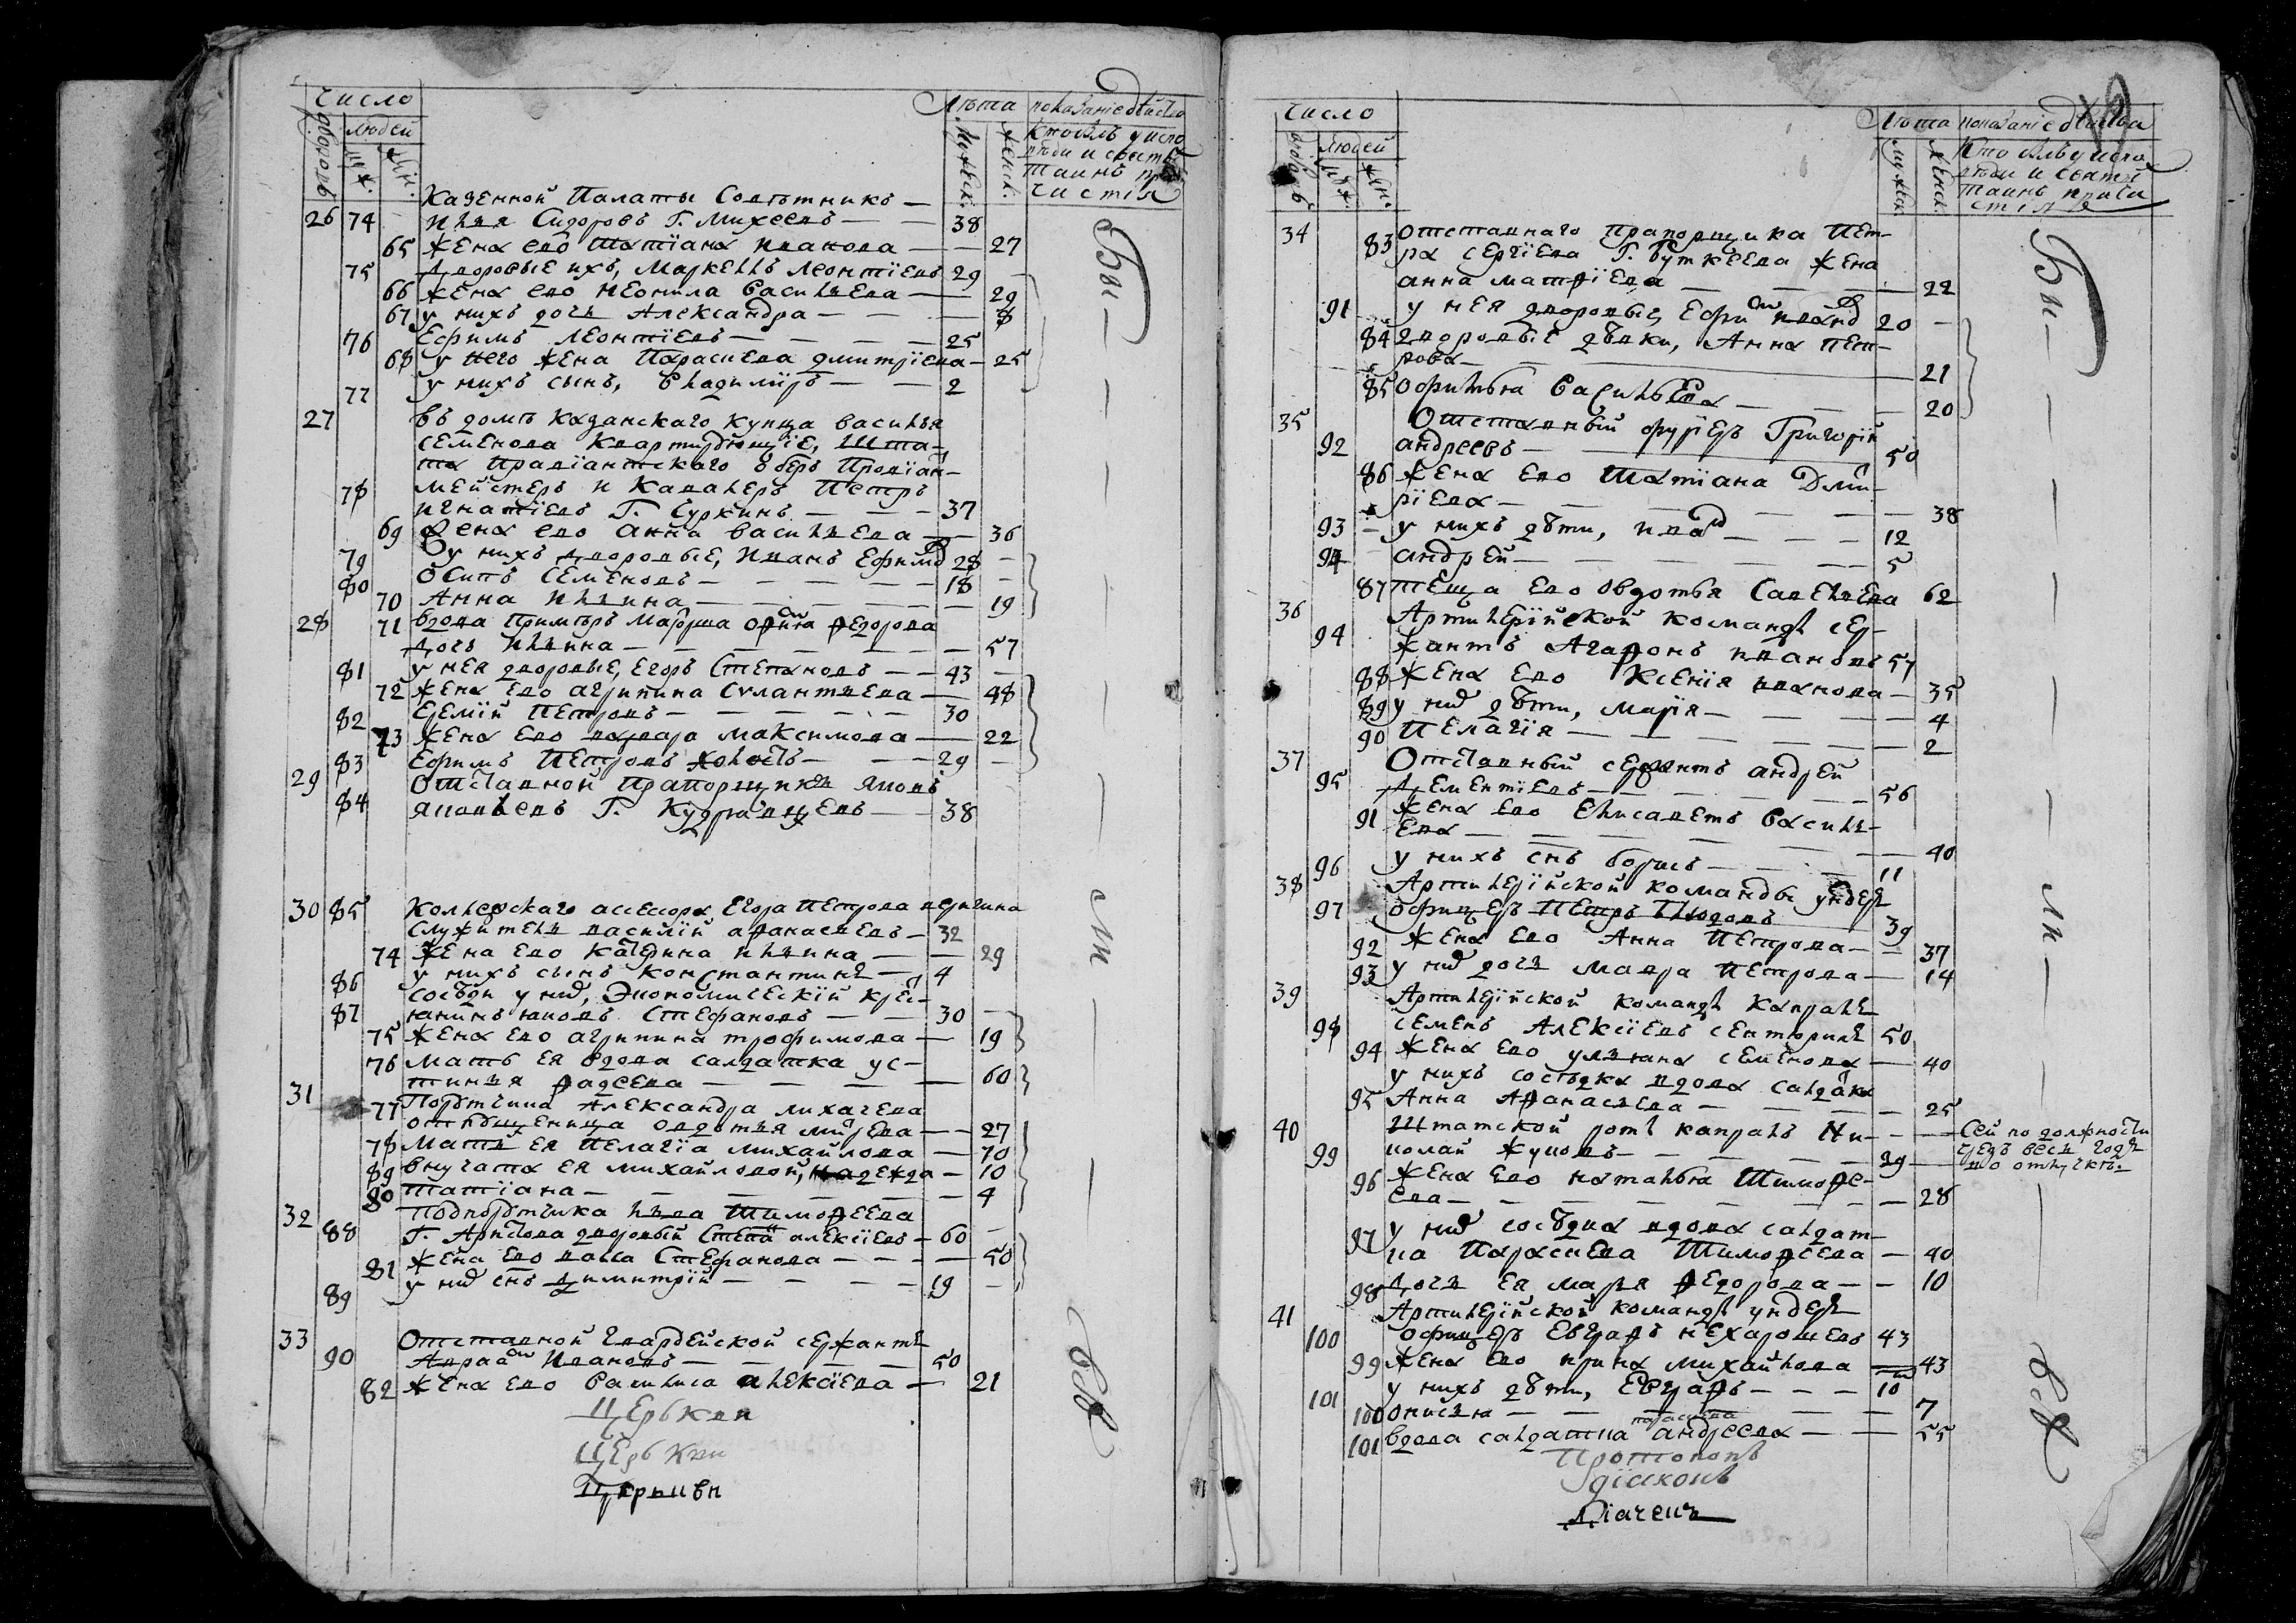 Число
Лѣта показание дѣйства
дворовъ
людей
муж.
жен.
мужеск.
женск.
кто былъ у испо
вѣди и святыхъ
таинъ при
частия
Казенной Палаты Советникъ —
26 74 Илья Сидоровъ Г. Михеевъ — — 38
65 жена ево Татïана Иванова — — 27
75 дворовые ихъ, Маркеллъ Леонтïевъ 29 —
66 жена ево Неонила Васильева — — 29
67 у нихъ дочь Александра — — — 8
76 Ефимъ Леонтïевъ — — — — 25
68 у него жена Параскева Дмитрïева — 25
77 у нихъ сынъ, Владимïръ — — 2
27 въ домѣ казанскаго купца Василья
Семенова квартирующïе, Шта-
та Правïантскаго Оберъ Провïан-
78 мейстеръ и Кавалеръ Петръ
Игнатïевъ Г. Суркинъ — — — 37
69 Жена ево Анна Васильева — — 36
79 у нихъ дворовые, Иванъ Ефимо 28 —
80 Осипъ Семеновъ — — — — — 18 —
70 Анна Ильина — — — — — — 19
28 71 вдова Примѣръ Маïорша Федорова
дочь Ильина — — — — — — 57
81 у нея дворовые, Егоръ Степановъ — — 43 —
72 жена ево Агрипина Силантьева — — 48
82 Еремïй Петровъ — — — — — 30
73 жена ево Варвара Максимова — — 22
83 Ефимъ Петровъ холостъ — — — 29 —
29 Отставной Прапорщикъ Яковъ
84 Яковлевъ Г. Кудрявцевъ — — 38
30 85 Колежскаго ассесора Егора Петрова
служитель Василïй Афанасьевъ — 32
74 Жена ево Катерина Ильина — — 29
86 у нихъ сынъ Константинъ — 4
сосѣди у них, Экономическïй крес-
87 янинъ Яковъ Стефановъ — — 30 —
75 жена ево Агрипина Трофимова — 19
76 Мать ея вдова салдатка Ус-
тинья Фадеева — — — — 60
31 77 Порутчика Александра Лихачева
отпущеница Авдотья — — 27
78 Мать ея Пелагïа Михайлова — 70
89 внучата ея Михайловой, Надежда — 10
80 Татïана — — — — — — 4
32 Подпорутчика Льва Тимофеева
88 Г. Аристова дворовый Степа Алексïевъ — 60 —
81 жена ево Васса Стефанова — — — 50
89 у них снъ Димитрïй — — — — 19 —
33 Отставной Гвардейской сержантъ
90 Авраам Ивановъ — — — — 50
82 жена ево Василиса Алексïева — 21
Церькви
Церькви
Церькви
Бы — — — — — — ли — — всѣ
Число
Лѣта показание дѣйства
дворовъ
людей
муж.
жен.
мужеск.
женск.
кто былъ у испо
вѣди и святыхъ
таинъ прича
стия
34 83 Отставнаго Прапорщика Пет-
ра Сергïева Г. Буткеева жена
Анна Матфïева — — — — 22
91 у нея дворовые, Ефим Ивано 20 —
84 дворовые дѣвки, Анна Пет-
рова — — — — 21
85 Офимья Васильева — — — 20
35 Отставный фурïеръ Григорïй
92 Андреевъ — — — — 50
86 жена ево Татïана Дмит-
рïева — — — — — — 38
93 — у нихъ дѣти, Иван — — — 12
94 Андрей — — — — — — 5
87 теща ево Овдотья Савельева 62
36 Артилерïйской команды сер-
94 жантъ Агафонъ Ивановъ 57
88 жена ево Ксенïя Иванова — 35
89 у них дѣти, Марïя — — — — 4
90 Пелагïя — — — — — — 2
37 Отставный сержантъ Андрей
95 Дементïевъ — — — — — 56
91 жена ево Елисаветъ Василь-
ева — — — — — — — 40
96 у нихъ снъ Борисъ — — — 11
38 Артилерïйской команды ундеръ
97 офицеръ Петръ — 39
92 жена ево Анна Петрова — — 37
93 у них дочь Мавра Петрова — 14
39 Артилерïйской команды капралъ
98 Семенъ Алексïевъ 50
94 жена ево Ульяна Семенова — 40
у нихъ соседка вдова салдатка
95 Анна Афанасьева — — — — 25
40 Штатской роты капралъ Ни- — — Сей по должности
99 колай Жуковъ — — — — — 29 — чрезъ весь годъ
96 жена ево Наталья Тимофе- въ отлучкѣ
ева — — — — — — — — 28
97 у них соседка вдова салдат-
ка Параскева Тимофеева — 40
98 дочь ея Марья Федорова — — 10
41 Артилерïйской команды ундеръ
100 офицеръ Евграфъ Нехорошевъ 43
99 жена ево Ирина Михайлова 43
101 у нихъ дѣти, Евграфъ — — — 10
100 Анисья — — — — — — 7
Параскева
101 вдова салдатка Андреева — — 55
Протопопъ
Дïаконъ
Дïачекъ
Бы — — — — — — ли — — всѣ